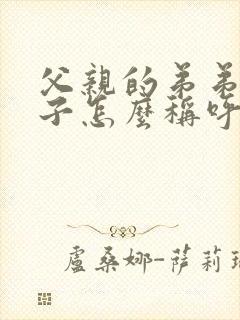 父親的弟弟
子怎麼稱呼
盧桑娜-薩莉